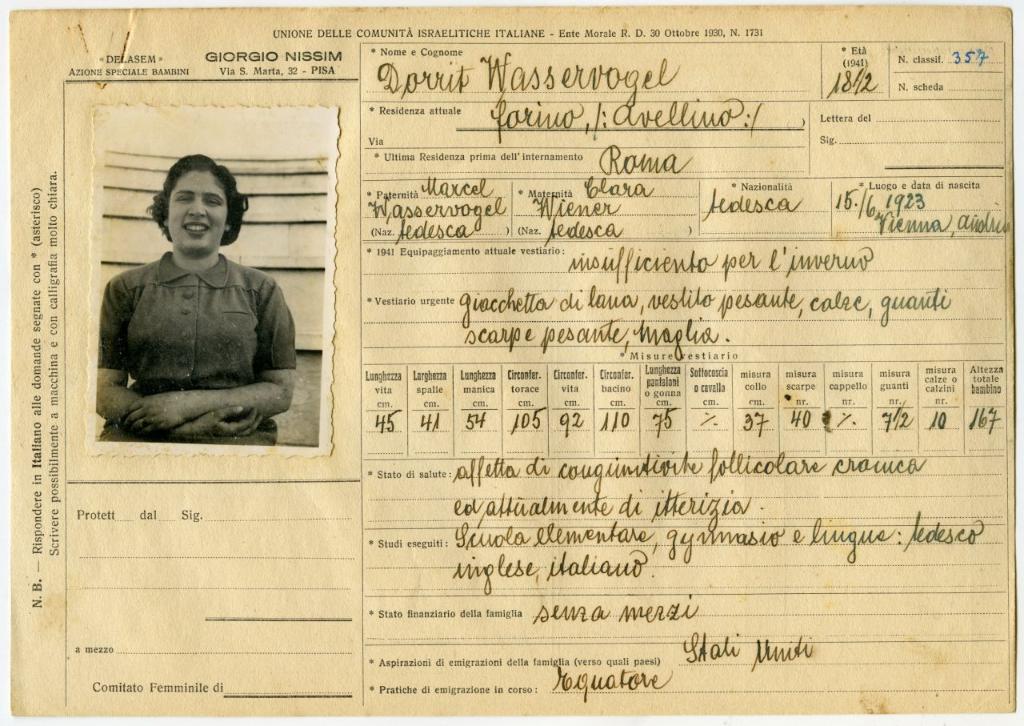 UNIONE DELLE COMUNITÀ ISRAELITICHE ITALIANE - Ente Morale R. D. 30 Ottobre 1930, N. 1731
« DELASEM »
AZIONE SPECIALE BAMBINI
GIORGIO NISSIM
Via S. Marta, 32 - PISA
* Nome e Cognome
Dorrit Wasservogel
* Età
(1941)
18 1/2
N. classif. 357
N. scheda
* Residenza attuale forino, /: avellino :/ )
Via
Lettera del
Sig.
* Ultima Residenza prima dell'internamento Roma
* Paternità Marcel
Wasservogel
(Naz. tedesca )
* Maternità Clara
Wiener
(Naz. tedesca )
* Nazionalità
tedesca
* Luogo e data di nascita
15./6. 1923
Vienna,
* 1941 Equipaggiamento attuale vestiario: insufficiento per l'inverno
* Vestiario urgente giacchetta di lana, vestito pesante, calze, guanti
scarpe pesante, maglia.
* Misure vestiario
Lunghezza vita cm. 45
Larghezza spalle cm. 41
Lunghezza manica cm. 54
Circonfer. torace cm. 105
Circonfer. vita cm. 92
Circonfer. bacino cm. 110
Lunghezza pantaloni o gonna cm. 75
Sottocoscia o cavallo cm. %
misura collo cm. 37
misura scarpe nr. 40
misura cappello nr. %
misura guanti nr. 7 1/2
misura calze o calzini nr. 10
Altezza totale bambino 167
* Stato di salute: affetta di congiuntivite follicolare cronica
ed attualmente di itterizia.
* Studi eseguiti: Scuola elementare, gymnasio e lingue: tedesco
inglese, italiano.
* Stato finanziario della famiglia senza mezzi
* Aspirazioni di emigrazione della famiglia (verso quali paesi) Stati Uniti
* Pratiche di emigrazione in corso: Equatore
Protett dal Sig.
a mezzo
Comitato Femminile di
N. B. — Rispondere in Italiano alle domande segnate con * (asterisco)
Scrivere possibilmente a macchina e con calligrafia molto chiara.